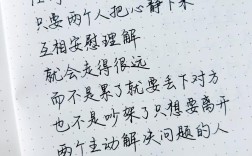 只要两个人把心静下来
互相安慰理解
就会走得很远
而不是累了就要丢下对方
也不是吵架了只想要离开
两个主动解决问题的人